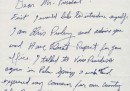 Dear Mr. President:
First I would like to introduce myself.
I am Elvis Presley and admire you
and Have Great Respect for your
office. I talked to Vice President
Agnew in Palm Springs 3 weeks ago and
expressed my concern for our country.